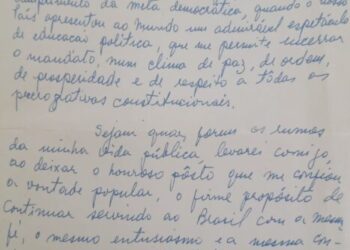 cumprimento da meta democrática, quando o nosso
País apresentou ao mundo um admirável espetáculo
de educação política, que me permite encerrar
o mandato, num clima de paz, de ordem,
de prosperidade e de respeito a todas as
prerrogativas constitucionais.
Sejam quais forem os rumos
da minha vida pública, levarei comigo,
ao deixar o honroso pôsto que me confiou
a vontade popular, o firme propósito de
continuar servindo ao Brasil com a mesma
fé, o mesmo entusiasmo e a mesma con-